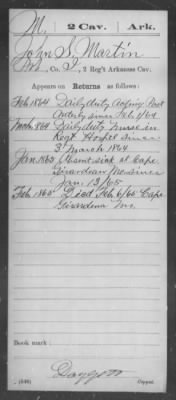 M. | 2 Cav. | Ark.
John S. Martin
Pvt, Co. I, 2 Reg't Arkansas Cav.
Appears on Returns as follows:
Feb 1864 Daily duty acting
orderly since Feb 1/64
Mch 1864 Daily duty Nurse in
Regt Hospl since
3 March 1864
Jan 1865 Absent sick at Cape
Girardeau Mo since
Jan. 13/65
Feb 1865 Died Feb 6/65 Cape
Girardeau Mo.
Book mark:
Daggett
(546) Copyist.